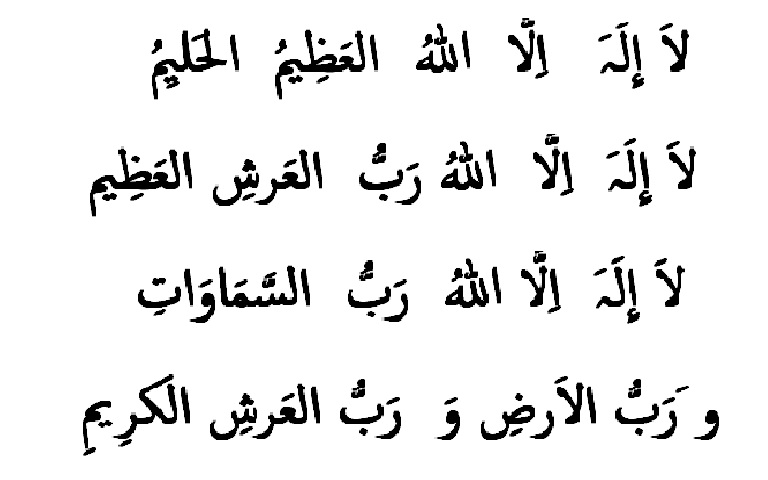 لاَ إِلَہَ اِلَّا اللهُ العَظِيمُ الحَليِمُ
لاَ إِلَہَ اِلَّا اللهُ رَبُّ العَرشِ العَظِيم
لاَ إِلَہَ اِلَّا اللهُ رَبُّ السَّمَاوَاتِ
و َرَبُّ الاَرضِ وَ رَبُّ العَرشِ الَكرِيمِ